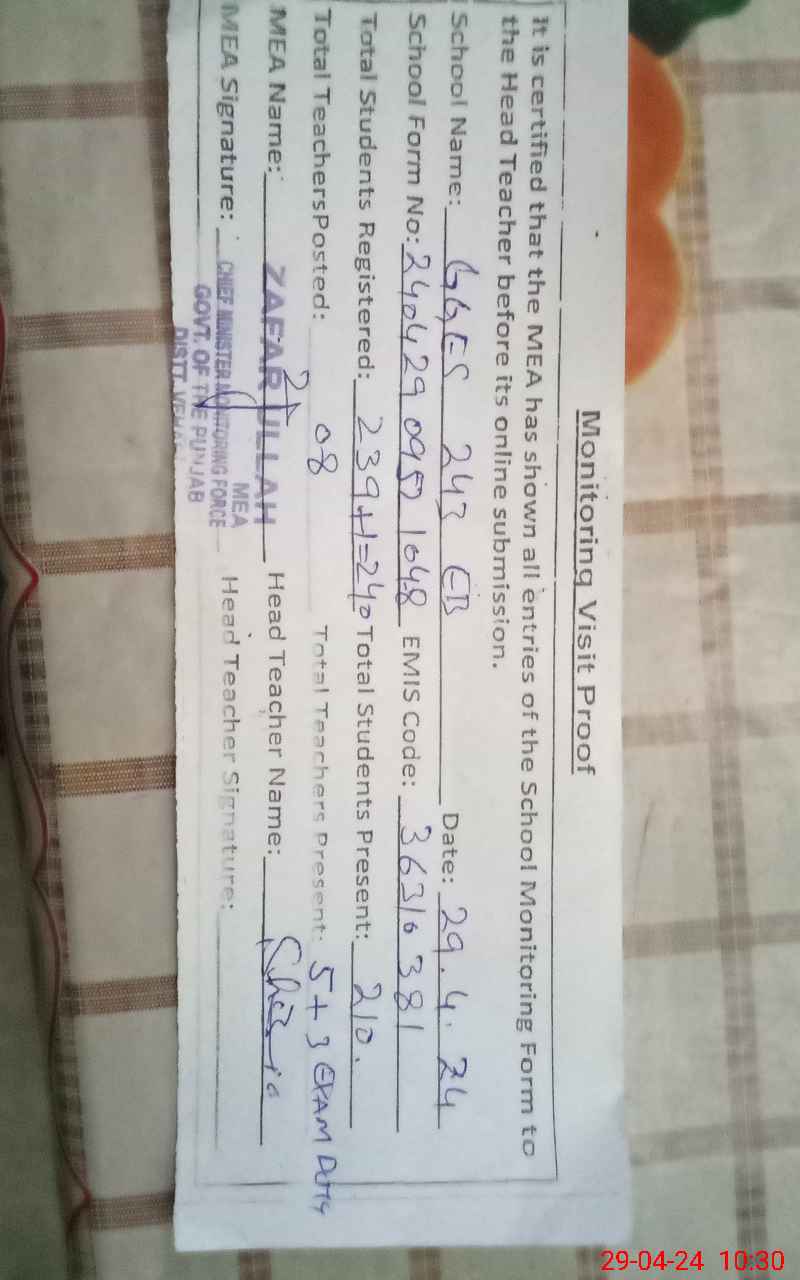 Monitoring Visit Proof
It is certified that the MEA has shown all entries of the School Monitoring Form to
the Head Teacher before its online submission.
School Name: GGES 243 EB Date: 29.4.24
School Form No: 24042909521048 EMIS Code: 36310381
Total Students Registered: 239+1=240 Total Students Present: 210.
Total TeachersPosted: 08 Total Teachers Present: 5+3 EXAM DUTY
MEA Name: ZAFAR ULLAH Head Teacher Name:
MEA
MEA Signature: CHIEF MINISTER MONITORING FORCE Head Teacher Signature:
GOVT. OF THE PUNJAB
DISTT.
29-04-24 10:30